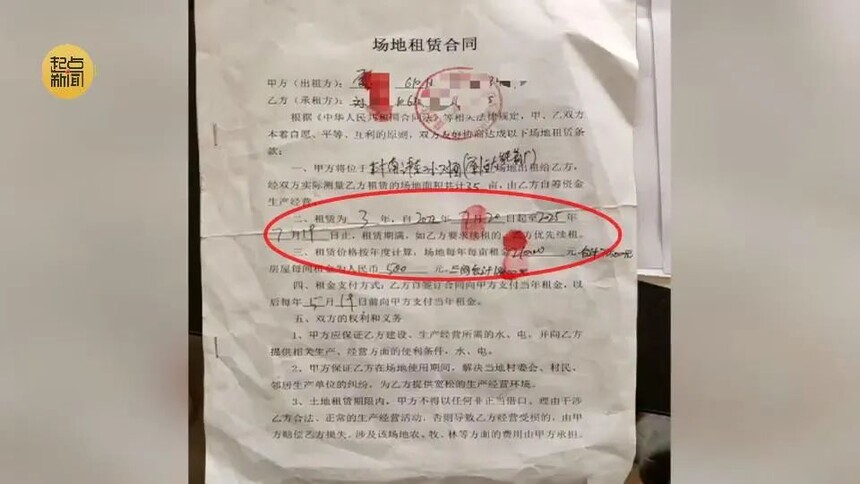 起点
新闻
场地租赁合同
甲方（出租方）：
乙方（承租方）：
根据《中华人民共和国合同法》等相关法律规定，甲、乙双方
本着自愿、平等、互利的原则，双方友好协商达成以下场地租赁条
款：
一、甲方将位于 场地出租给乙方，
经双方实际测量乙方租赁的场地面积共计35亩，由乙方自筹资金
生产经营。
二、租赁为3年，自2022年7月20日起至2025年
7月19日止，租赁期满，如乙方要求续租的，乙方优先续租。
三、租赁价格按年度计算，场地每年每亩租金 元，
房屋每间租金为人民币500元，
四、租金支付方式：乙方自签订合同向甲方支付当年租金，以
后每年5月19日前向甲方支付当年租金。
五、双方的权利和义务
1、甲方应保证乙方建设、生产经营所需的水、电。并向乙方
提供相关生产、经营方面的便利条件，水、电。
2、甲方保证乙方在场地使用期间，解决当地村委会、村民、
邻居生产单位的纠纷，为乙方提供宽松的生产经营环境。
3、土地租赁期限内，甲方不得以任何非正当借口、理由干涉
乙方合法、正常的生产经营活动，否则导致乙方经营受损的，由甲
方赔偿乙方损失。涉及该场地农、牧、林等方面的费用由甲方承担。